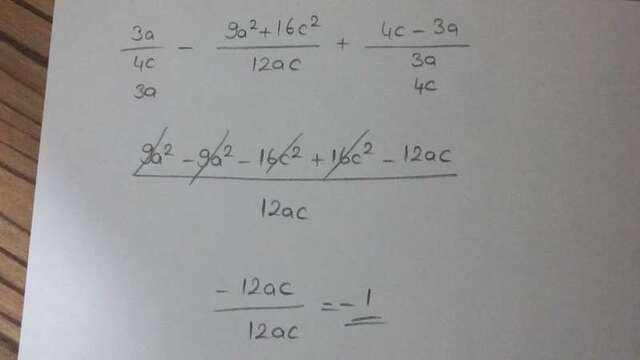 3a/4c - 9a² + 16c²/12ac + 4c - 3a/3a
3a 4c
9a² - 9a² - 16c² + 16c² - 12ac
12ac
-12ac/12ac = -1